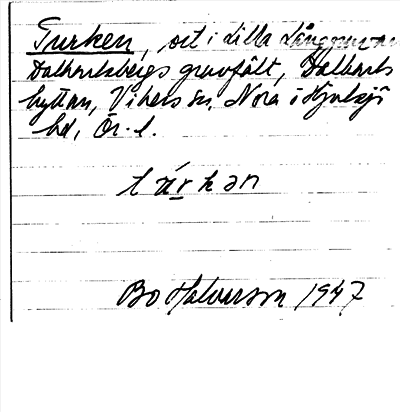 Turken, ort i Lilla Långgruvan
Dalkarlsbergs gruvfält, Dalkarls
hyttan, Vikers sn, Nora o Hjulsjö
hd, Ör. l.
túrkən
Bo Halverson 1947